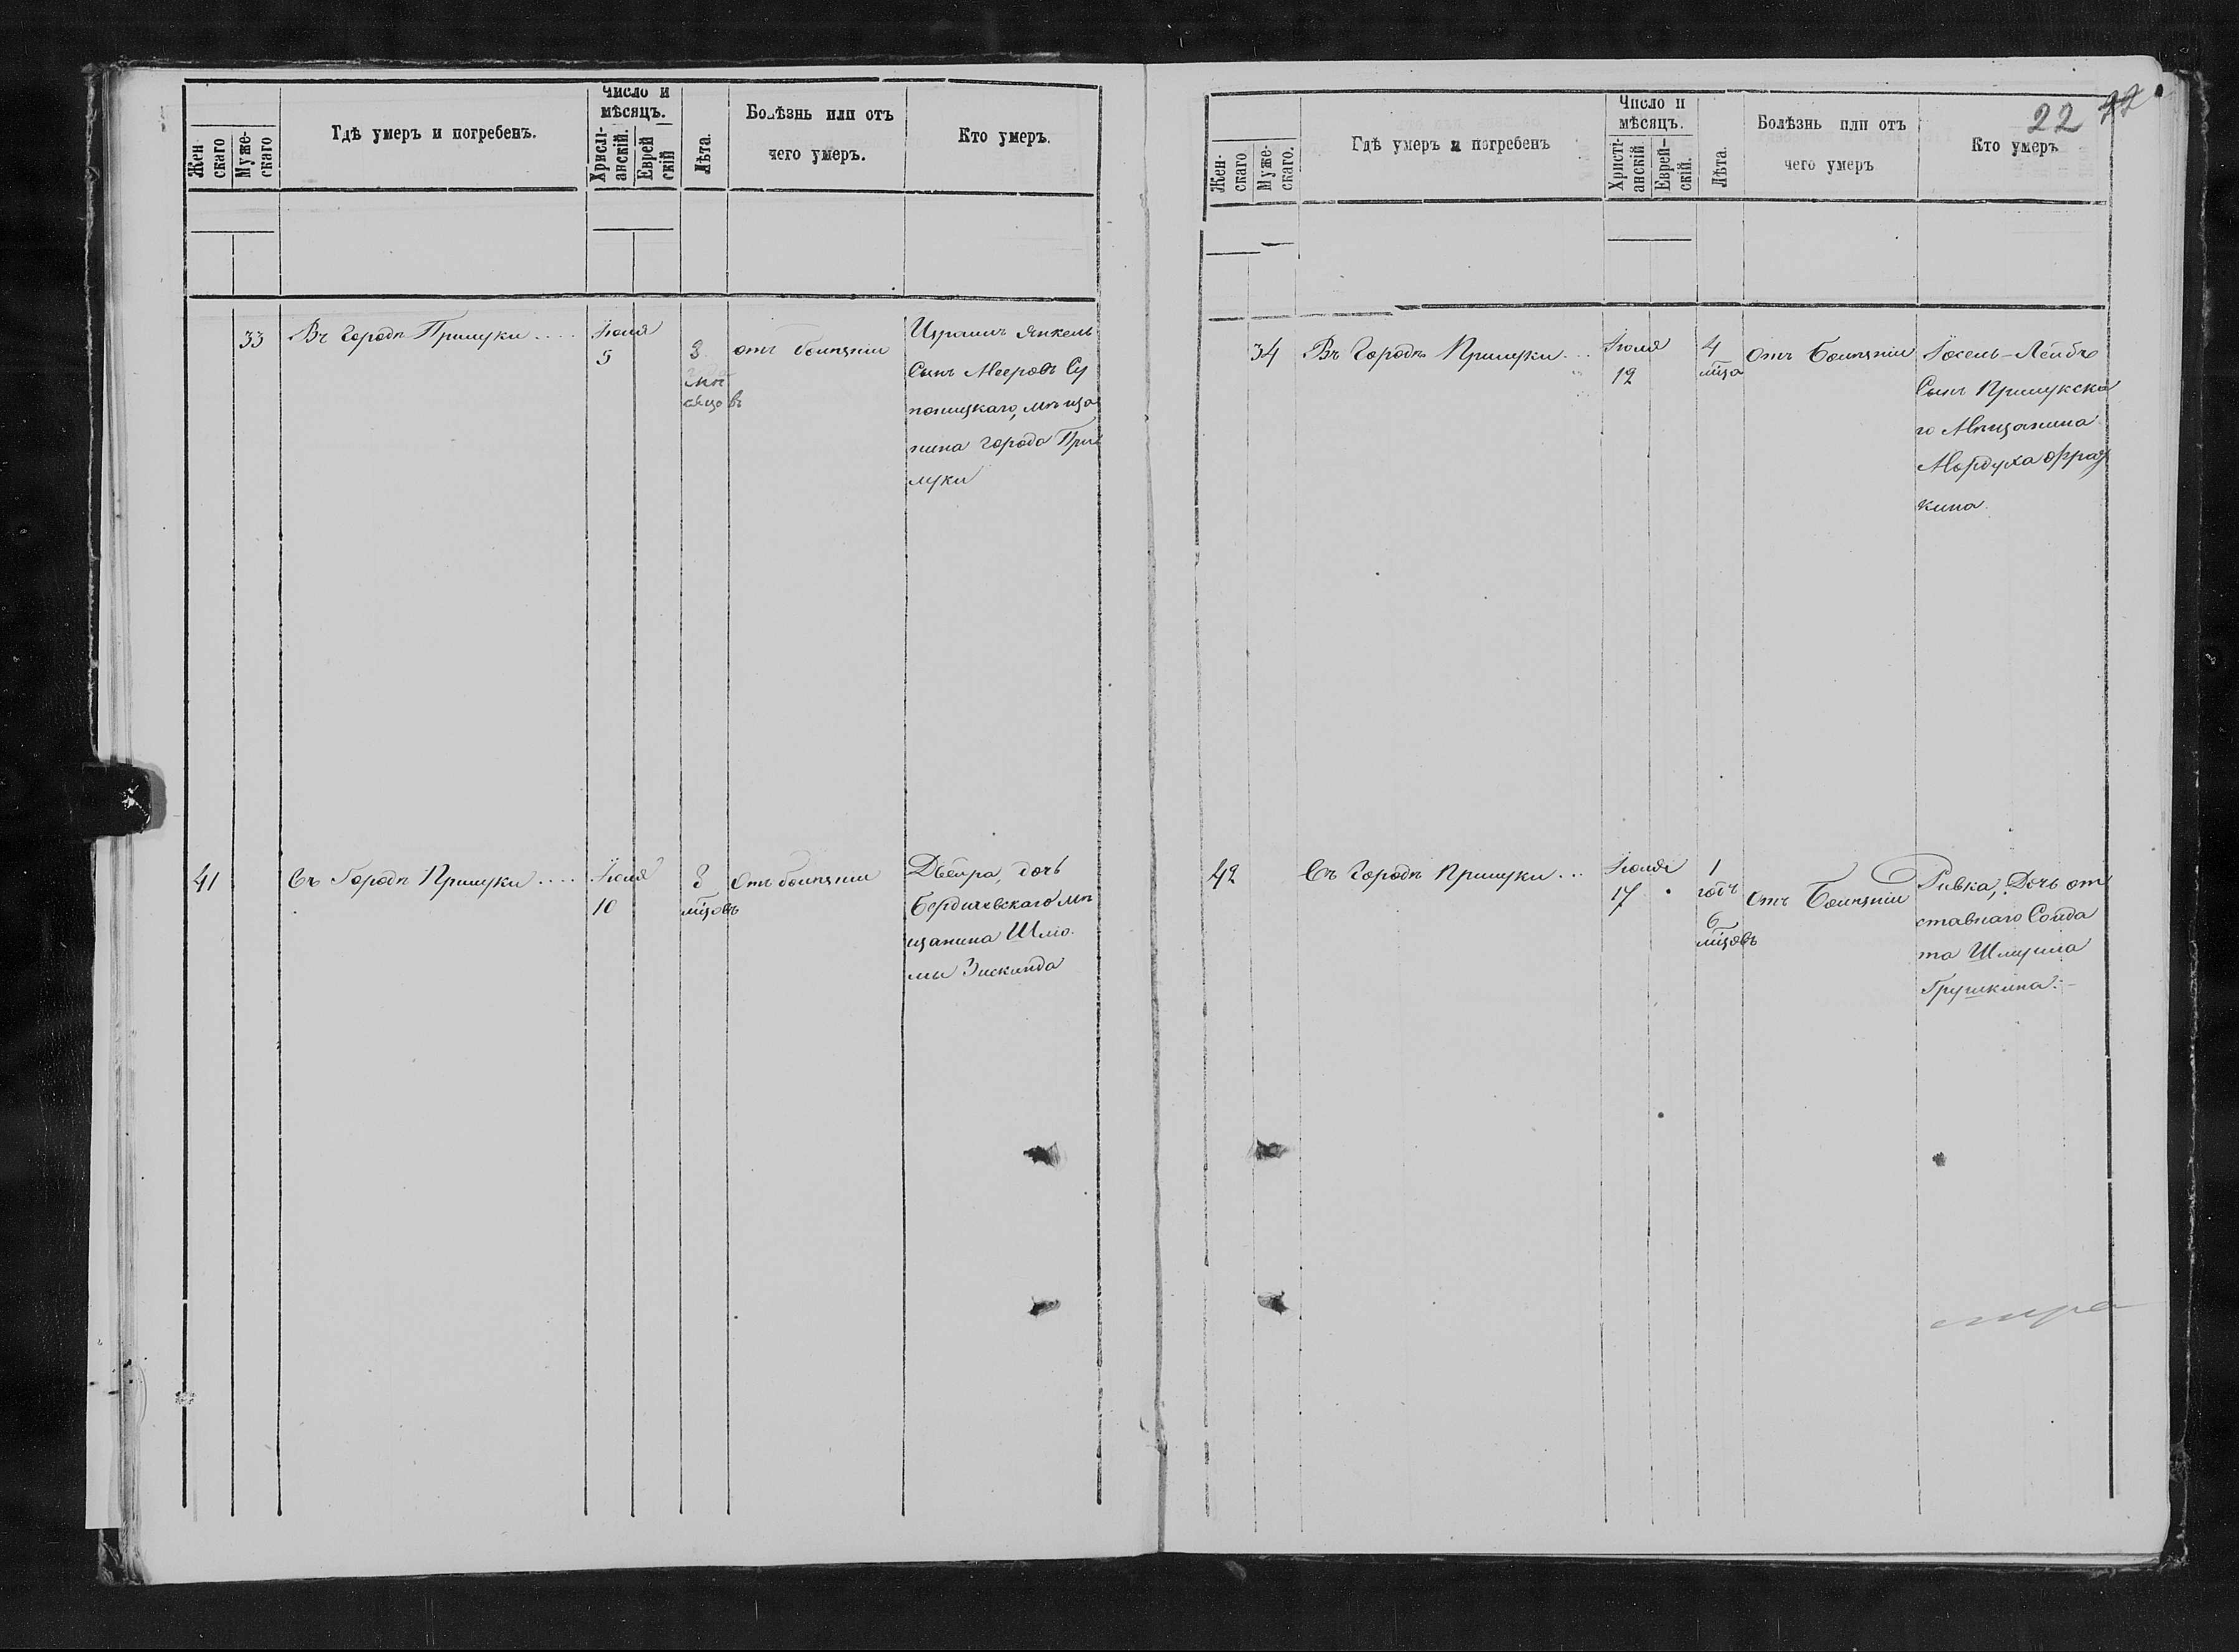 Жен-
скаго
Муже-
скаго
Гдѣ умеръ и погребенъ.
Число и
мѣсяцъ.
Христі-
анскій.
Еврей
скій
Лѣта.
Болѣзнь или отъ
чего умеръ.
Кто умеръ.
33
Въ Городѣ Прилуки ....
Іюля
5
3
мѣ
сяцовъ
отъ болѣзніи
Израиль Янкель
Сынъ Мееровъ Су
поницкаго, мѣща
нина города При
луки
41
Въ Городѣ Прилуки ....
Іюля
10
8
мѣцовъ
Отъ болѣзніи
Двейра, дочь
Бердичевскаго мѣ
щанина Шлю
мы Зискинда
22
Жен-
скаго
Муже-
скаго.
Гдѣ умеръ и погребенъ
Число и
мѣсяцъ.
Христі-
анскій
Еврей-
скій.
Лѣта.
Болѣзнь или отъ
чего умеръ
Кто умеръ
34
Въ Городѣ Прилуки...
Іюля
12
4
мѣца
Отъ Болѣзніи
Іосель-Лейбъ
Сынъ Прилукска
го Мѣщанина
Мордуха Фрад
кина.
42
Въ Городѣ Прилуки...
Іюля
17
1
годъ
6
мѣцовъ
Отъ Болѣзніи
Ривка, Дочь от
ставнаго Солда
та Шмуила
Грушкина.